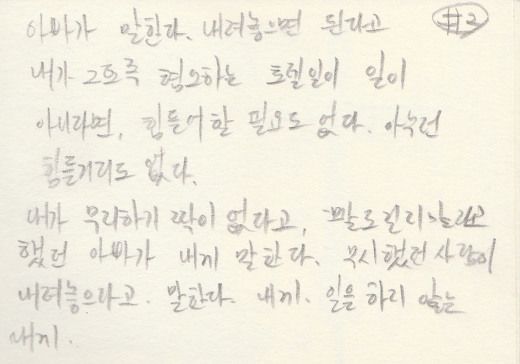 아빠가 말한다. 내려놓으면 된다고 #3
내가 그토록 혐오하는 일이 일이
아니라면, 힘들어 할 필요도 없다. 아무런
힘들거리도 없다.
내가 무리하기 짝이 없다고,
했던 아빠가 내게 말한다. 무시했던 사람이
내려놓으라고. 말한다. 내게. 일을 하지 않는
내게.